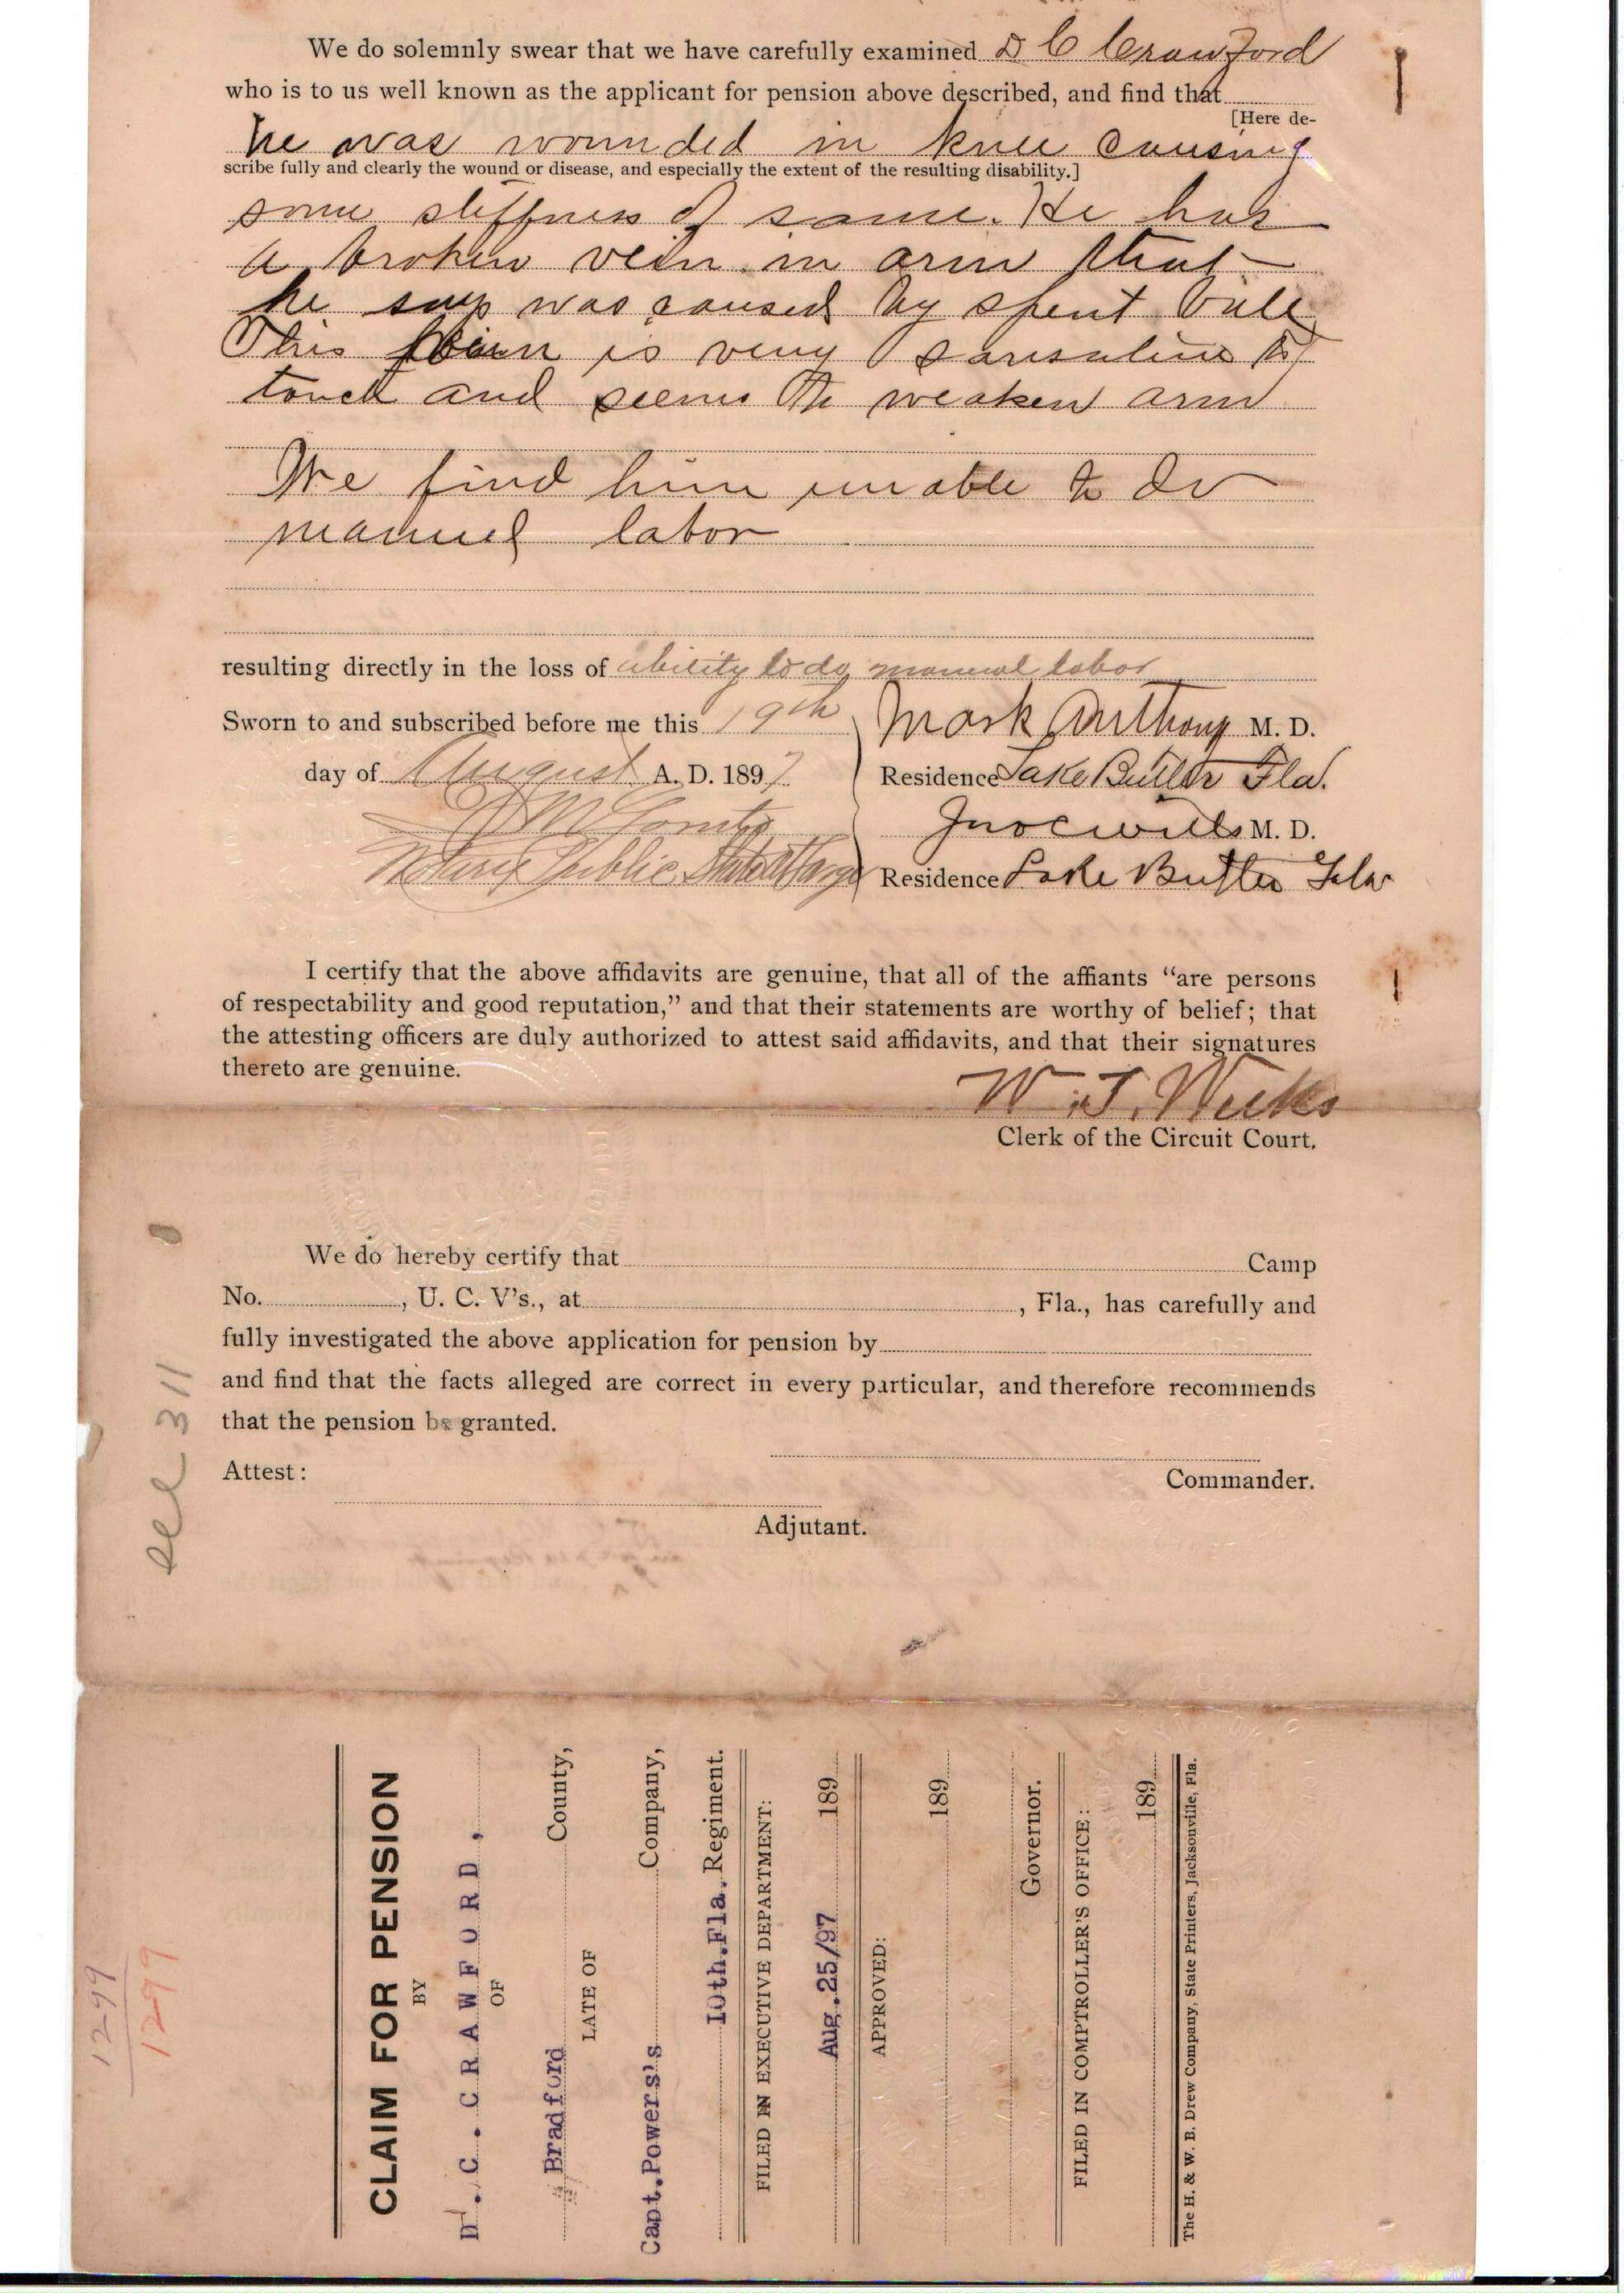 We do solemnly swear that we have carefully examined D C Crawford
who is to us well known as the applicant for pension above described, and find that
[Here de-
he was wounded in knee causing
scribe fully and clearly the wound or disease, and especially the extent of the resulting disability.]
some stiffness of same. He has
a broken vein in arm that
he says was caused by spent ball
This is very to
touch and seems to weaken arm
We find him unable to do
manuel labor
resulting directly in the loss of ability to do manual labor
Sworn to and subscribed before me this 19th
Mark Anthony M. D.
day of August A. D. 1897
Residence Lake Butler Fla.
M. D.
Notary Public State at Large
Residence Lake Butler Fla
I certify that the above affidavits are genuine, that all of the affiants “are persons
of respectability and good reputation,” and that their statements are worthy of belief; that
the attesting officers are duly authorized to attest said affidavits, and that their signatures
thereto are genuine.
W. T. Weeks
Clerk of the Circuit Court.
We do hereby certify that Camp
No. , U. C. V's., at , Fla., has carefully and
fully investigated the above application for pension by
and find that the facts alleged are correct in every particular, and therefore recommends
that the pension be granted.
Attest:
Commander.
Adjutant.
see 311
1299
1299
CLAIM FOR PENSION
BY
D. C. CRAWFORD,
OF
Bradford County,
LATE OF
Capt. Powers's Company,
10th. Fla. Regiment.
FILED IN EXECUTIVE DEPARTMENT:
Aug. 25/97 189
APPROVED:
189
Governor.
FILED IN COMPTROLLER'S OFFICE:
189
The H. & W. B. Drew Company, State Printers, Jacksonville, Fla.